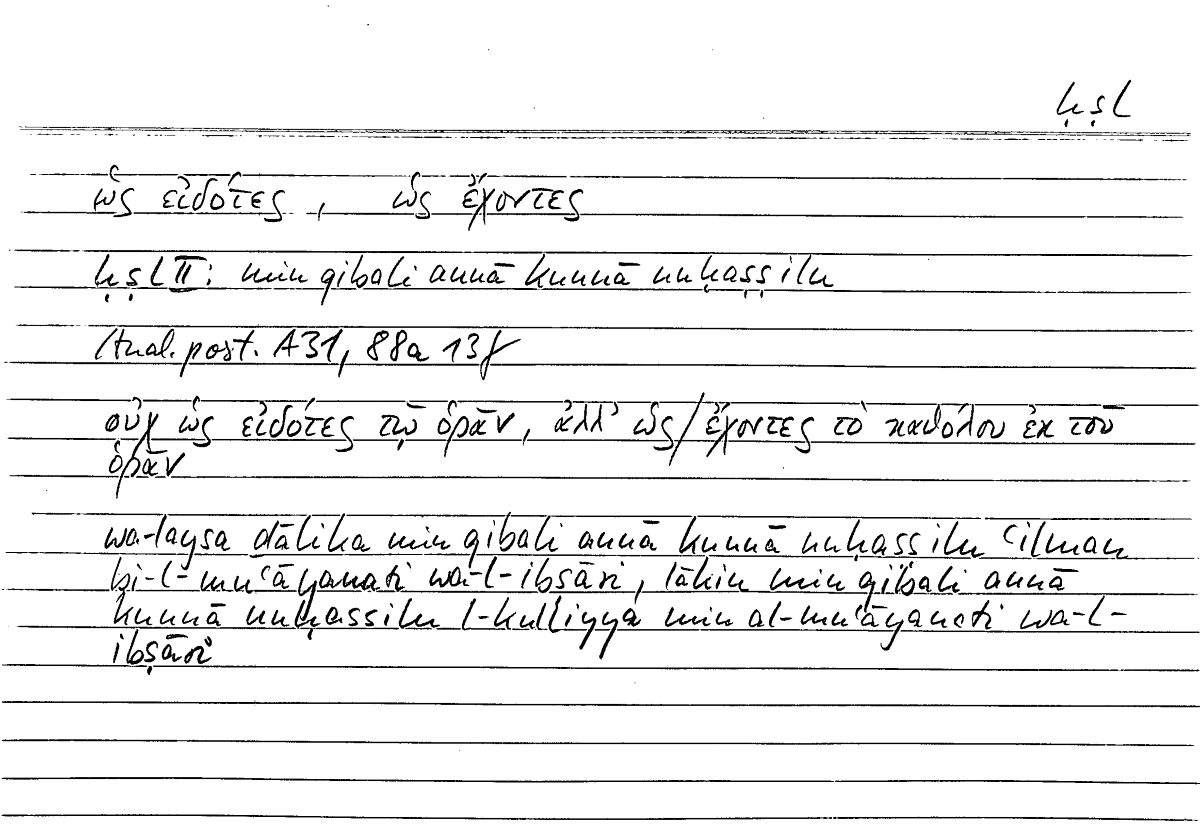 ḥṣl
ὡς εἰδότες, ὡς ἔχοντες
ḥṣl II: min qibali annā kunnā nuḥaṣṣilu
Anal. post. A31, 88a 13f
οὐχ ὡς εἰδότες τῷ ὁρᾶν, ἀλλ’ ὡς/ἔχοντες τὸ καθόλου ἐκ τοῦ
ὁρᾶν
wa-laysa ḏālika min qibali annā kunnā nuḥassilu ʿilman
bi-l-muʿāyanati wa-l-ibṣāri, lākin min qibali annā
kunnā nuḥassilu l-kulliyya min al-muʿāyanati wa-l-
ibṣāri